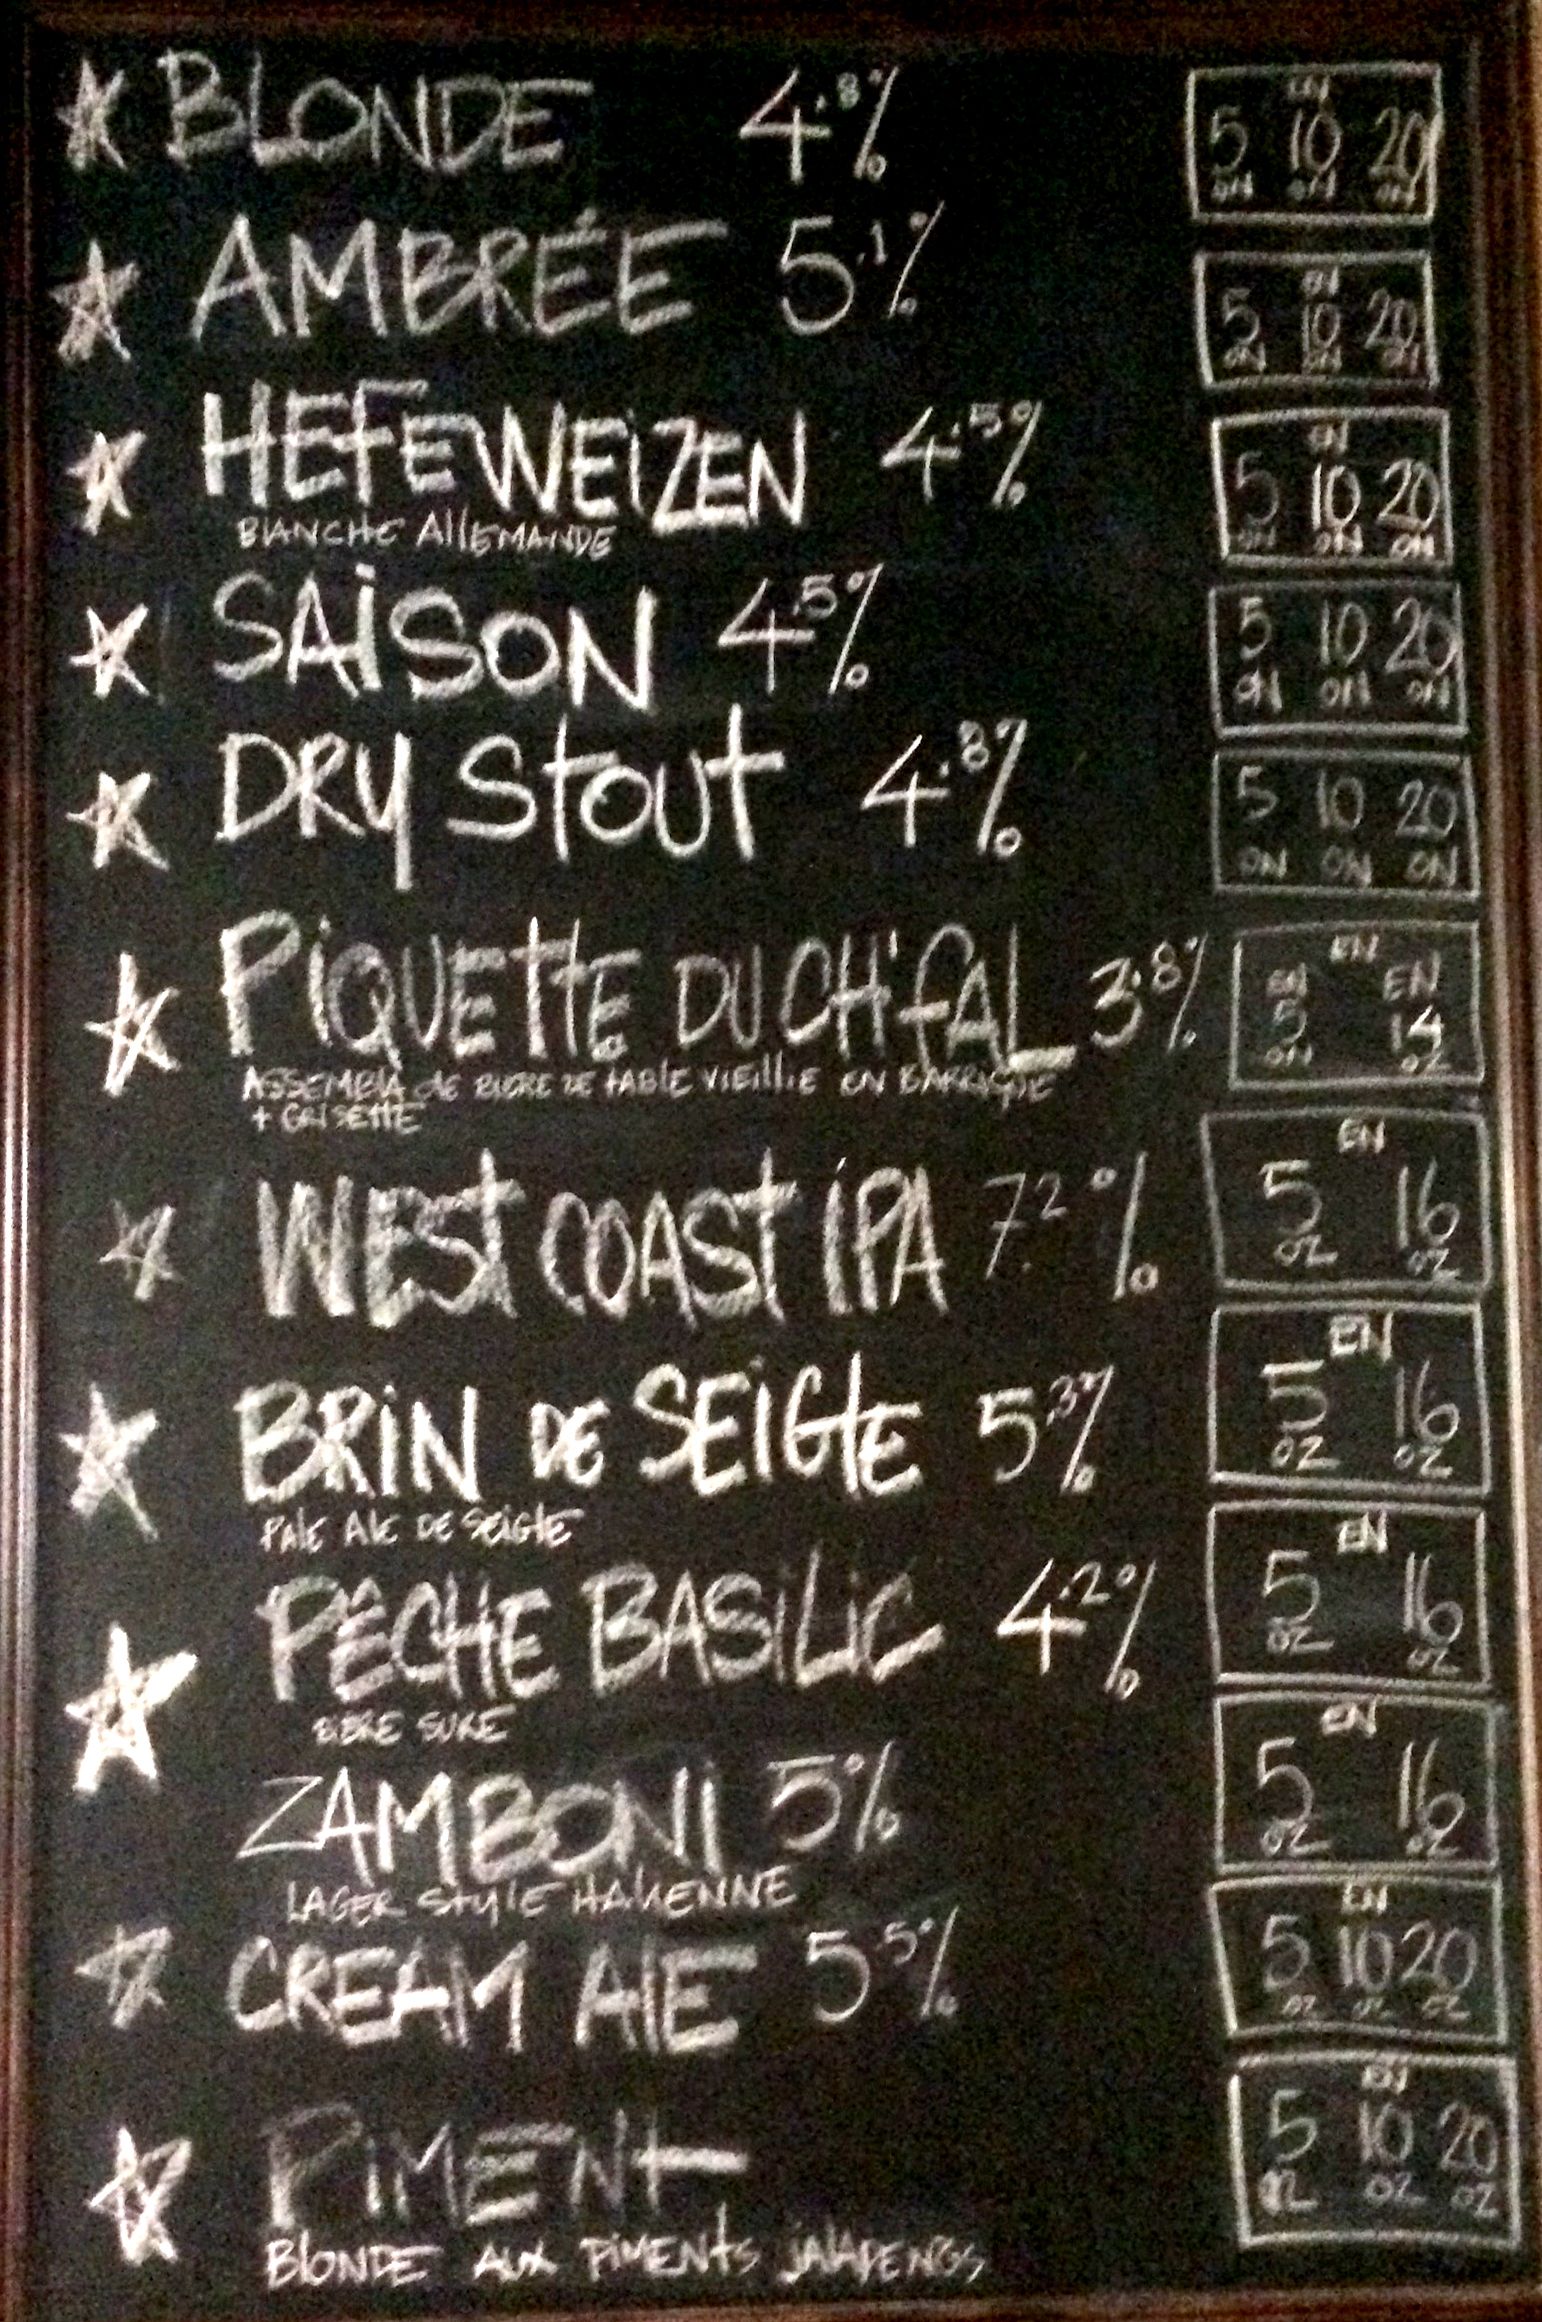 BLONDE 4.8%
EN
5 10 20
ON ON ON
AMBRÉE 5.1%
EN
5 10 20
ON ON ON
HEFEWEIZEN 4.5%
BLANCHE AllEMANDE
EN
5 10 20
ON ON ON
SAiSON 4.5%
5 10 20
ON ON ON
DRY Stout 4.8%
5 10 20
ON ON ON
PiQUEttE DU CH'fAL 3.8%
ASSEMBLA de BIERE DE tABlE VIEillIE EN BARRIQUE
+ GRISEttE
EN
EN EN
5 14
ON OZ
WESt COASt iPA 7.2%
EN
5 16
OZ OZ
BRiN DE SEiGlE 5.3%
PAlE AlE DE SEiGlE
EN
5 16
OZ OZ
PÊCHE BASiLiC 4.2%
BIERE SURE
EN
5 16
OZ OZ
ZAMBONI 5%
LAGER StylE ItAliENNE
EN
5 16
OZ OZ
CREAM AlE 5.5%
EN
5 10 20
OZ OZ OZ
PiMENt
BlONDE AUX PiMENts jAlAPENOS
EN
5 10 20
OZ OZ OZ